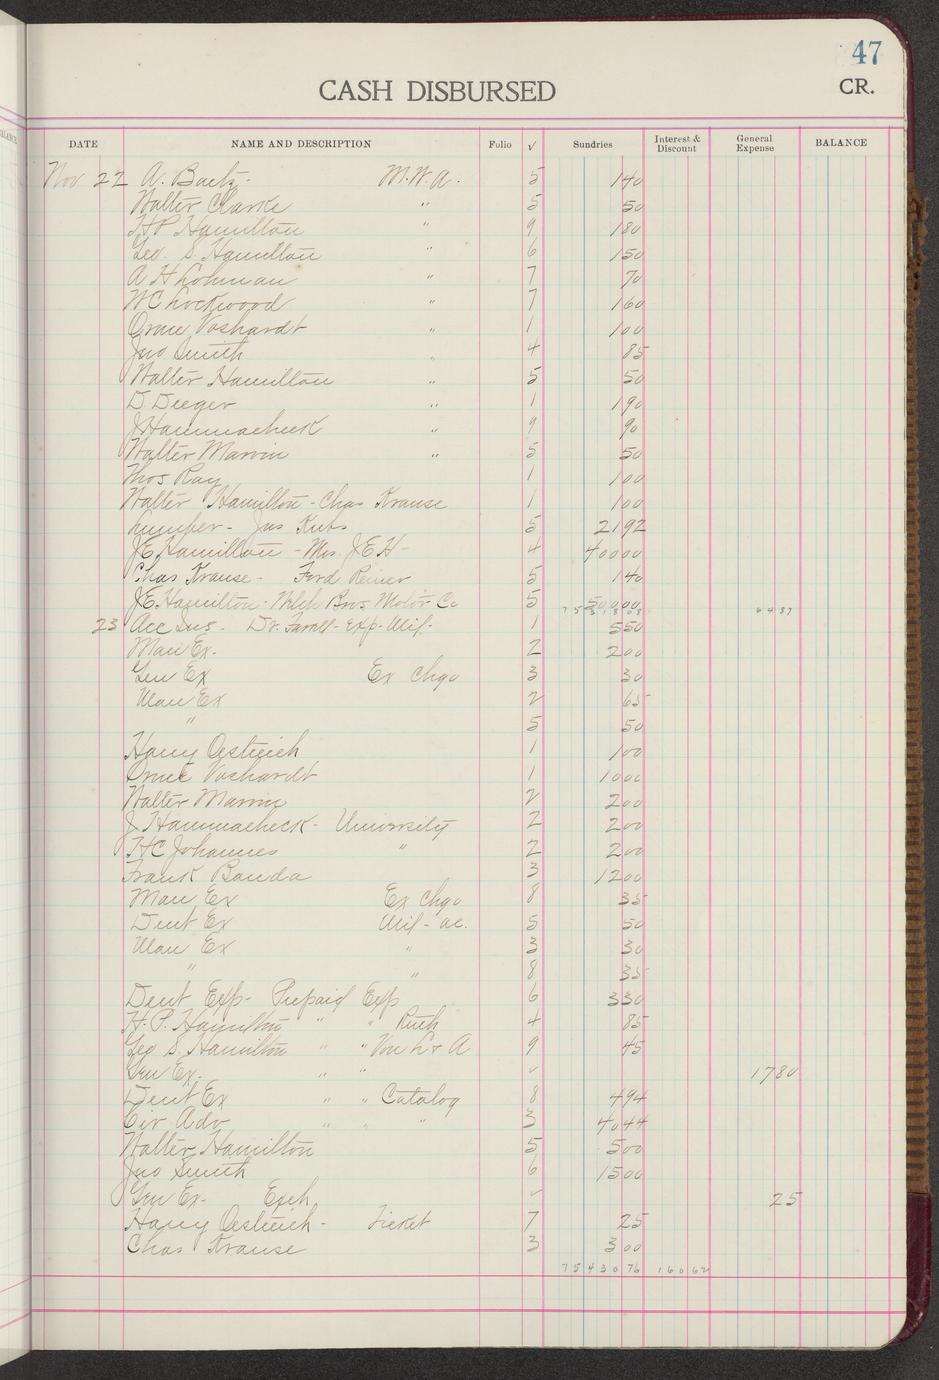 47
CASH DISBURSED
CR.
DATE NAME AND DESCRIPTION Folio √ Sundries Interest & Discount General Expense BALANCE
Nov 22 A. M.W.A. 5 140
Walter Clarke " 5 50
H P Hamilton " 9 180
Geo. S. Hamilton " 6 150
A H Lohman " 7 70
W C Lockwood " 7 160
Orme Voshardt " 1 100
Jno Smith " 4 85
Walter Hamilton " 5 50
D Dieger " 1 190
J Hammacheck " 9 90
Walter Marvin " 5 50
Thos Ray 1 100
Walter Hamilton - Chas Krause 1 100
Lumber - Jas 5 2192
J.E. Hamilton - Mrs. J.E.H - 4 40000
Chas Krause - Ford 5 140
J.E. Hamilton - Welch Bros Motor Co 5 50000
6487
23 Acc Ins. Dr. Exp. Mil- 1 550
Man Ex. 2 200
Gen Ex Ex Chgo 3 30
Man Ex 2 65
" 5 50
Harry Oestreich 1 100
Orme Voshardt 1 1000
Walter Marvin 2 200
J. Hammacheck - University 2 200
H C Johannes " 2 200
Frank Banda 3 1200
Man Ex Ex Chgo 8 35
Dent Ex Mil - ac. 5 50
Man Ex " 3 30
" " 8 35
Dent Exp - Prepaid Exp 6 330
H. P. Hamilton " " Ruth 4 85
Geo S. Hamilton " " Von L & A 9 45
Gen Ex. " " √ 1780
Dent Ex " " Catalog 8 494
Cir Adv " " " 3 4044
Walter Hamilton 5 500
Jno Smith 6 1500
Gen Ex - Exch. √ 25
Harry Oestreich - Ticket 7 25
Chas Krause 3 300
7543076 16062